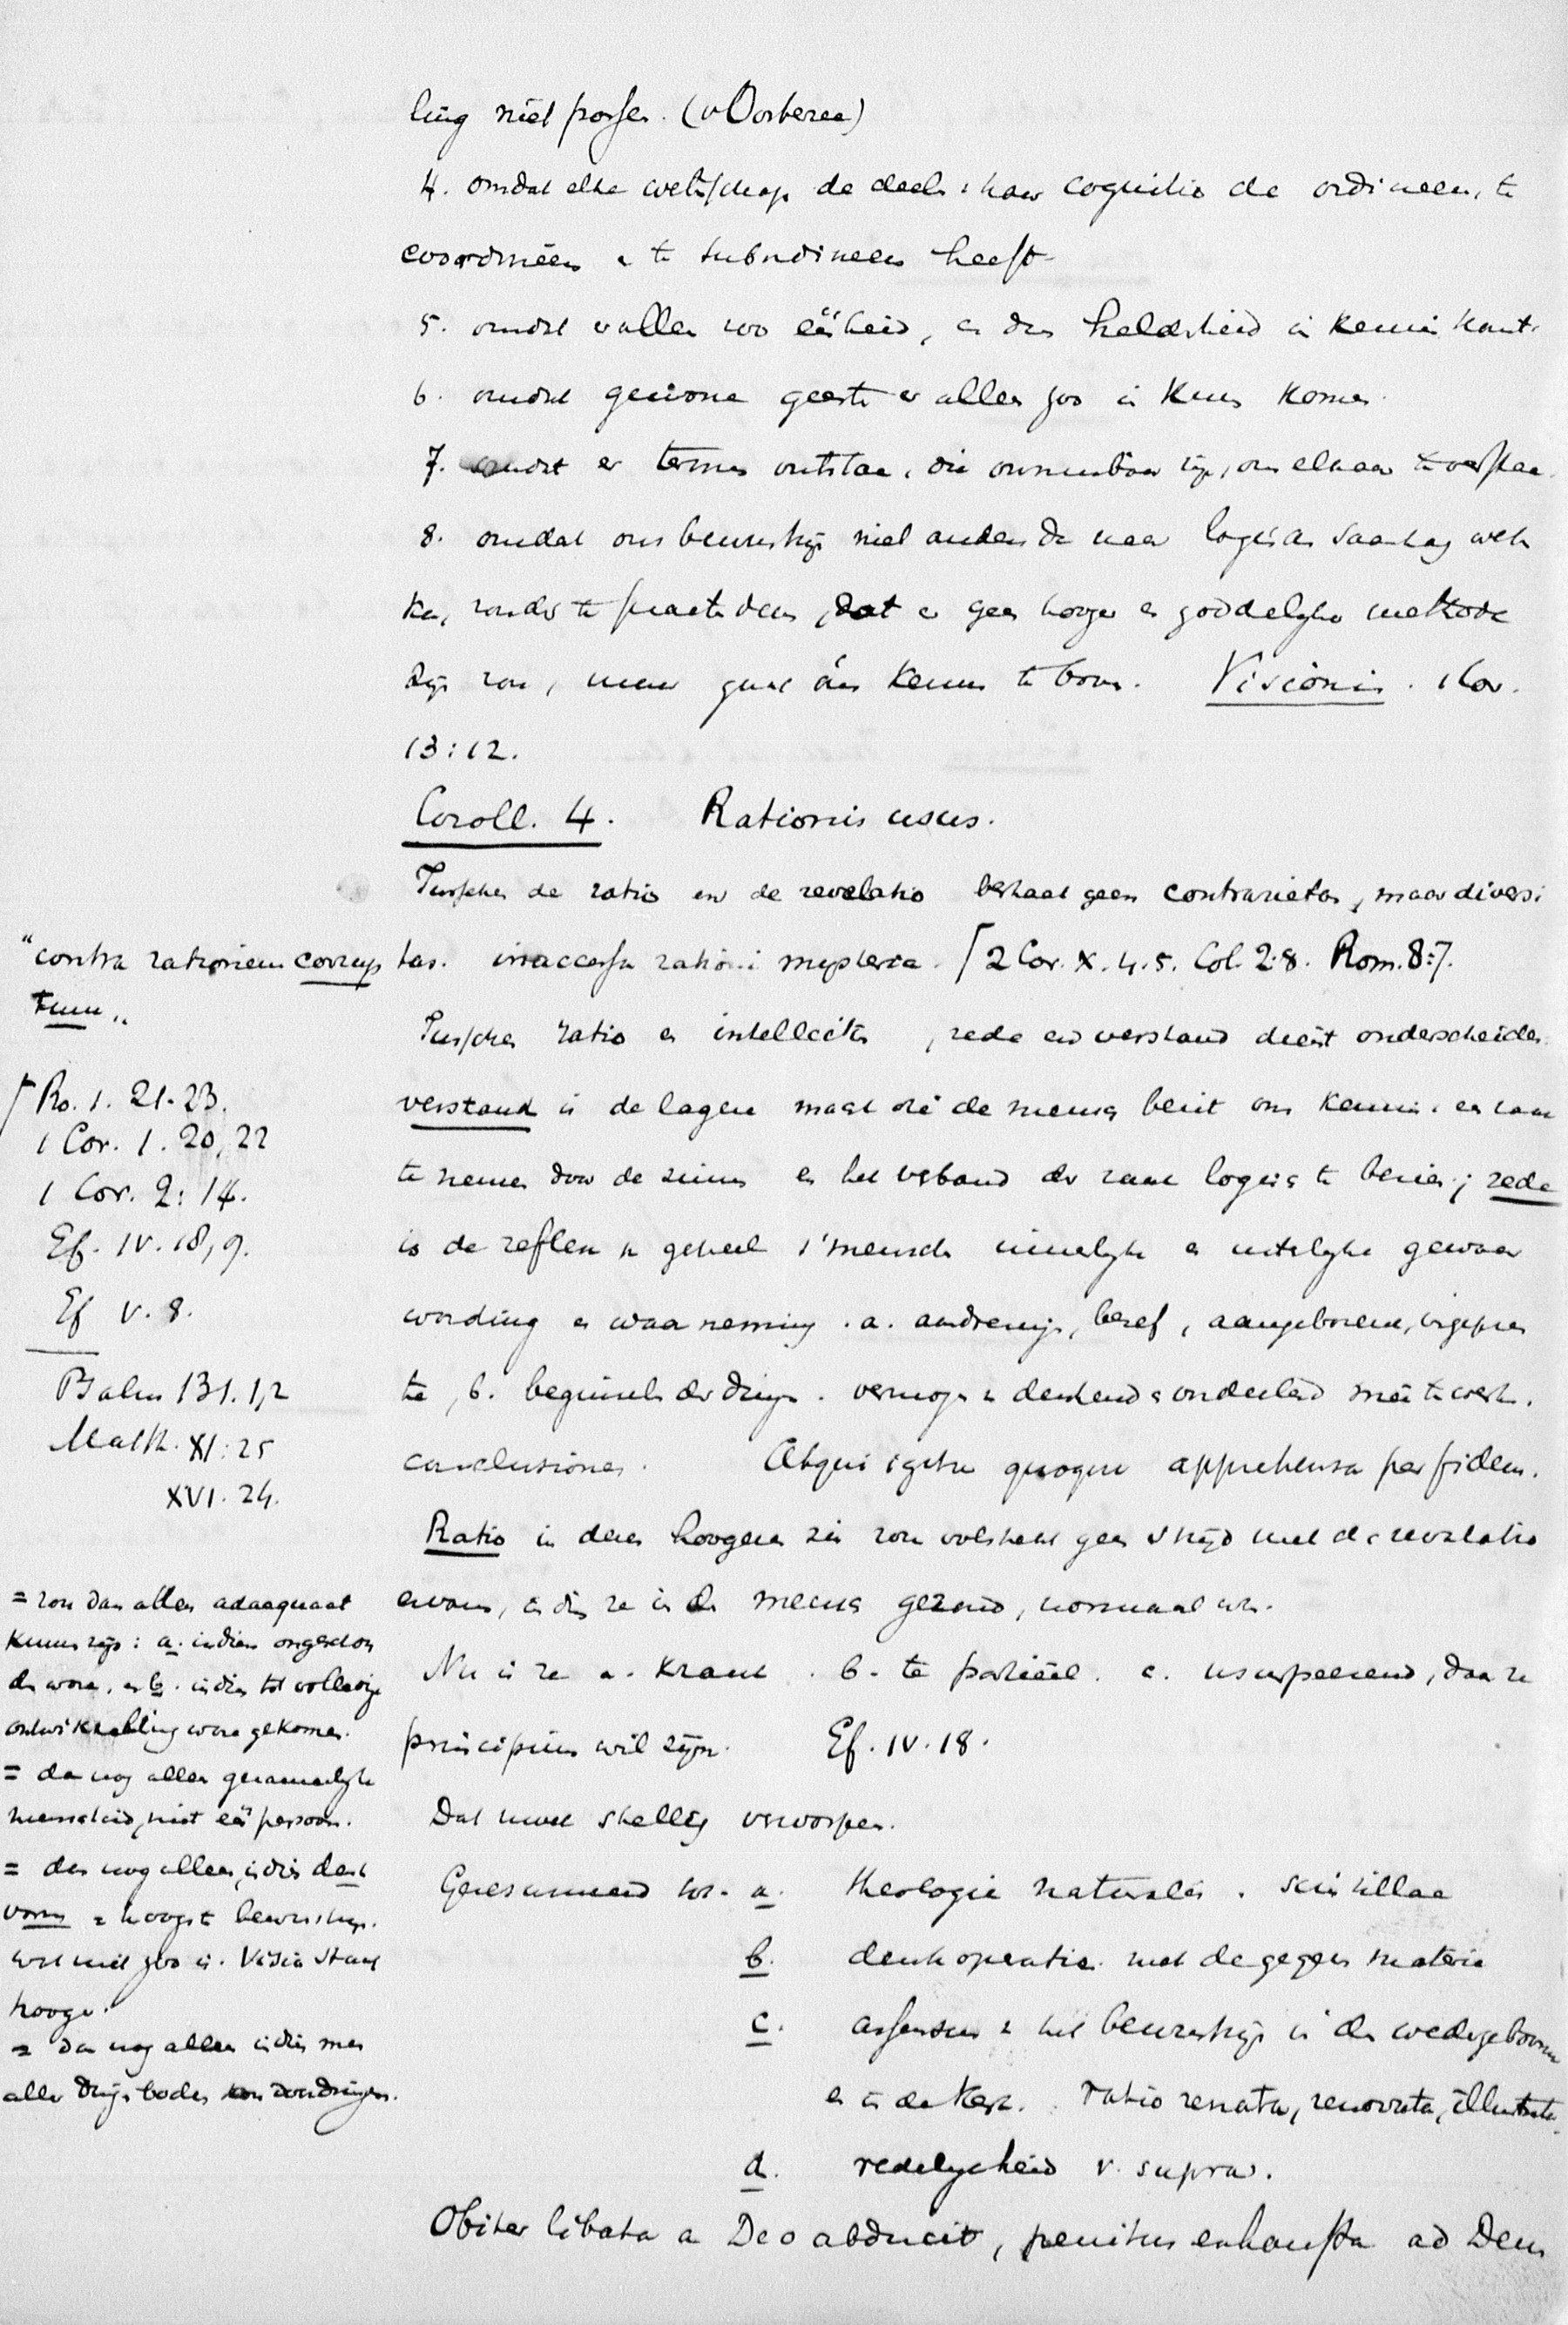 ling niet passen. (v Oosterzee)
4. omdat elke wetschap de deelen haar cognitio de ordineeren, te
coordineeren en te subordineeren heeft
5. omdat er alleen zoo eenheid, en dus helderheid in kennis komt.
6. omdat gewone geesten er alleen zoo in kunnen komen.
7. omdat er termen ontstaan, die onmisbaar zijn, om elkaar te verstaan.
8. omdat ons bewustzijn niet anders dan naar logischen samenhang werken
kan, zonder te praetendeeren, dat er geen hooger en goddelijke methode
zijn zou, maar om kennis te bouwen. Visionis. 1 Cor.
13:12.
Coroll. 4. Rationis usus.
Tusschen de ratio en de revelatio bestaat geen contrarietas, maar diversi
tas. inaccessa rationi mysteria. ⌈2 Cor. X. 4. 5. Col. 2:8. Rom. 8:7.
Tusschen ratio en intellectus, rede en verstand dient onderscheiden.
verstand is de lagere macht die de mensch bezit om kennis en waar
te nemen door de zinnen en het verband der zaken logisch te bezien; rede
is de reflex v geheel 's menschen innerlijke en uiterlijke gewaar
wording en waarneming. a. aandrening, besef, aangeborene, ingepren
te, b. beginselen der dingen. vermogen denkend en oordeelend mee te werken.
conclusiones. Atqui igitur quoque apprehensa per fidem.
Ratio in dezen hoogeren zin zou volstrekt geen strijd met de revelatio
ervaren, indien ze in den mensch gezond, normaal ware.
Nu is ze a. krank. b. te partieel. c. usurpeerend, daar ze
principium wil zijn. Ef. IV. 18.
Dat moet stellig verworpen.
Geresumeerd tot. a. theologie naturalis. scintillae
b. denkoperatie met de gegeven materie
c. assensus v het bewustzijn in den wedergeboren
en in de Kerk. ratio renata, renovata, illustrata.
d. redelijkheid v. supra.
Obiter libata a Deo abducit, penitus exhausta ad Deum
"contra rationem corrup
tam"
⌈Ro. 1. 21-23.
1 Cor. 1. 20, 22
1 Cor. 2: 14.
Ef. IV. 18, 9.
Ef V. 8.
Psalm 131. 1,2
Matth. XI: 25
XVI. 24.
= zou dan alleen adaequaat
kunnen zijn: a. indien ongeschon
den ware, en b. indien tot volledige
ontwikkeling ware gekomen.
= dan nog alleen gezamenlijke
menschheid, niet één persoon.
= dan nog alleen, indien denk
vorm = hoogste bewustzijn.
wat niet zoo is. Visio staat
hooger.
= Dan nog alleen indien men
aller dingen bodem kon doordringen.